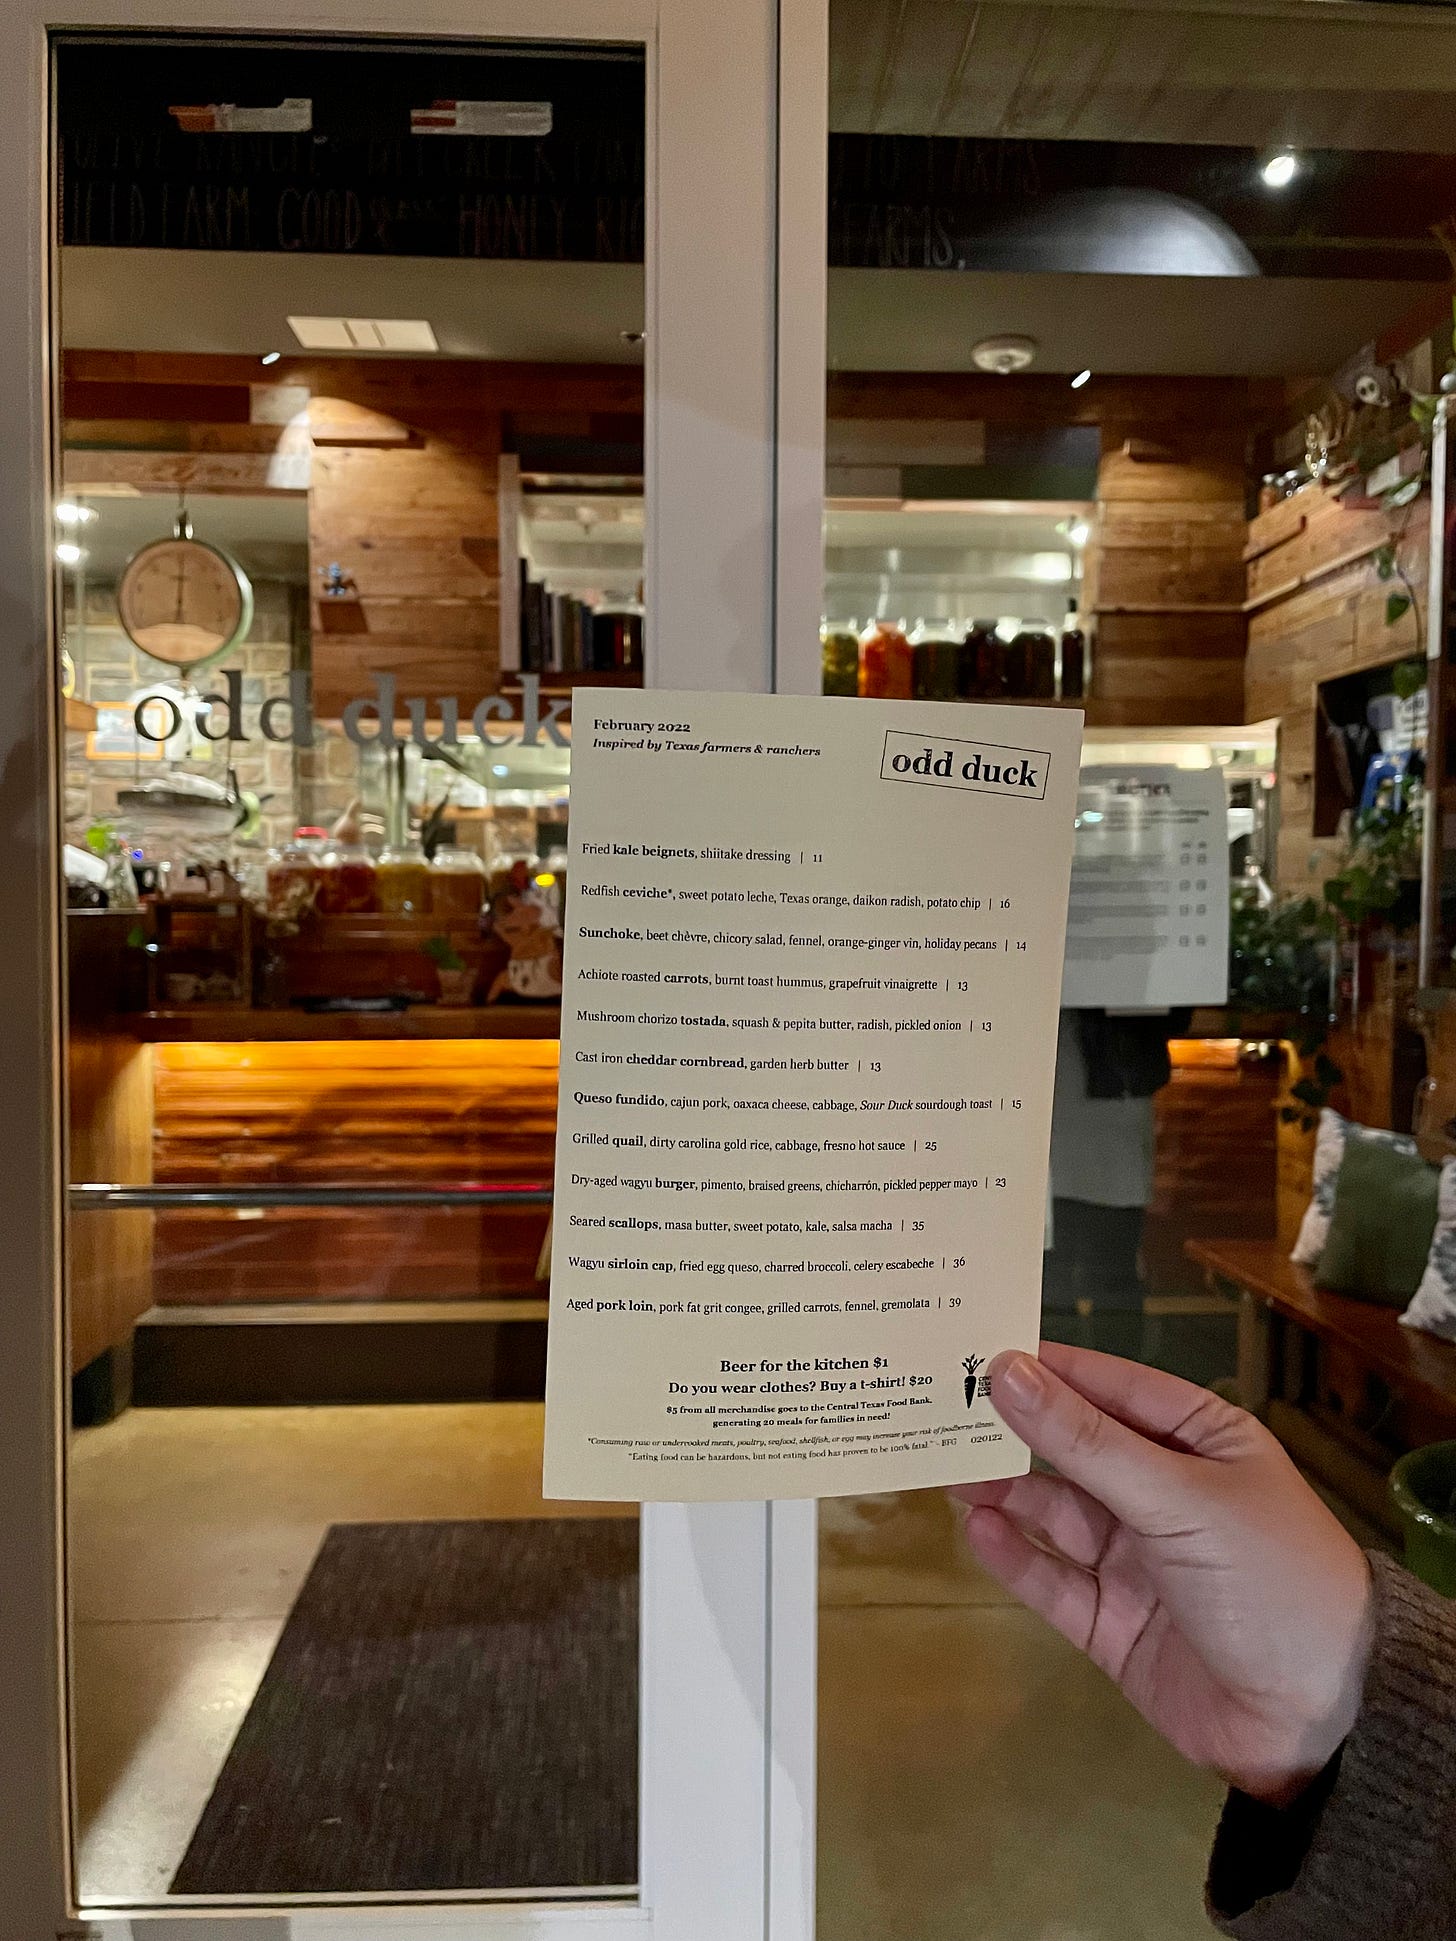 FARMS
FIELD FARM, GOOD HONEY, FARMS,
odd duck
February 2022
Inspired by Texas farmers & ranchers
odd duck
Fried kale beignets, shiitake dressing | 11
Redfish ceviche*, sweet potato leche, Texas orange, daikon radish, potato chip | 16
Sunchoke, beet chèvre, chicory salad, fennel, orange-ginger vin, holiday pecans | 14
Achiote roasted carrots, burnt toast hummus, grapefruit vinaigrette | 13
Mushroom chorizo tostada, squash & pepita butter, radish, pickled onion | 13
Cast iron cheddar cornbread, garden herb butter | 13
Queso fundido, cajun pork, oaxaca cheese, cabbage, Sour Duck sourdough toast | 15
Grilled quail, dirty carolina gold rice, cabbage, fresno hot sauce | 25
Dry-aged wagyu burger, pimento, braised greens, chicharrón, pickled pepper mayo | 23
Seared scallops, masa butter, sweet potato, kale, salsa macha | 35
Wagyu sirloin cap, fried egg queso, charred broccoli, celery escabeche | 36
Aged pork loin, pork fat grit congee, grilled carrots, fennel, gremolata | 39
Beer for the kitchen $1
Do you wear clothes? Buy a t-shirt! $20
$5 from all merchandise goes to the Central Texas Food Bank,
generating 20 meals for families in need!
*Consuming raw or undercooked meats, poultry, seafood, shellfish, or egg may increase your risk of foodborne illness.
"Eating food can be hazardous, but not eating food has proven to be 100% fatal." - BFG 020122